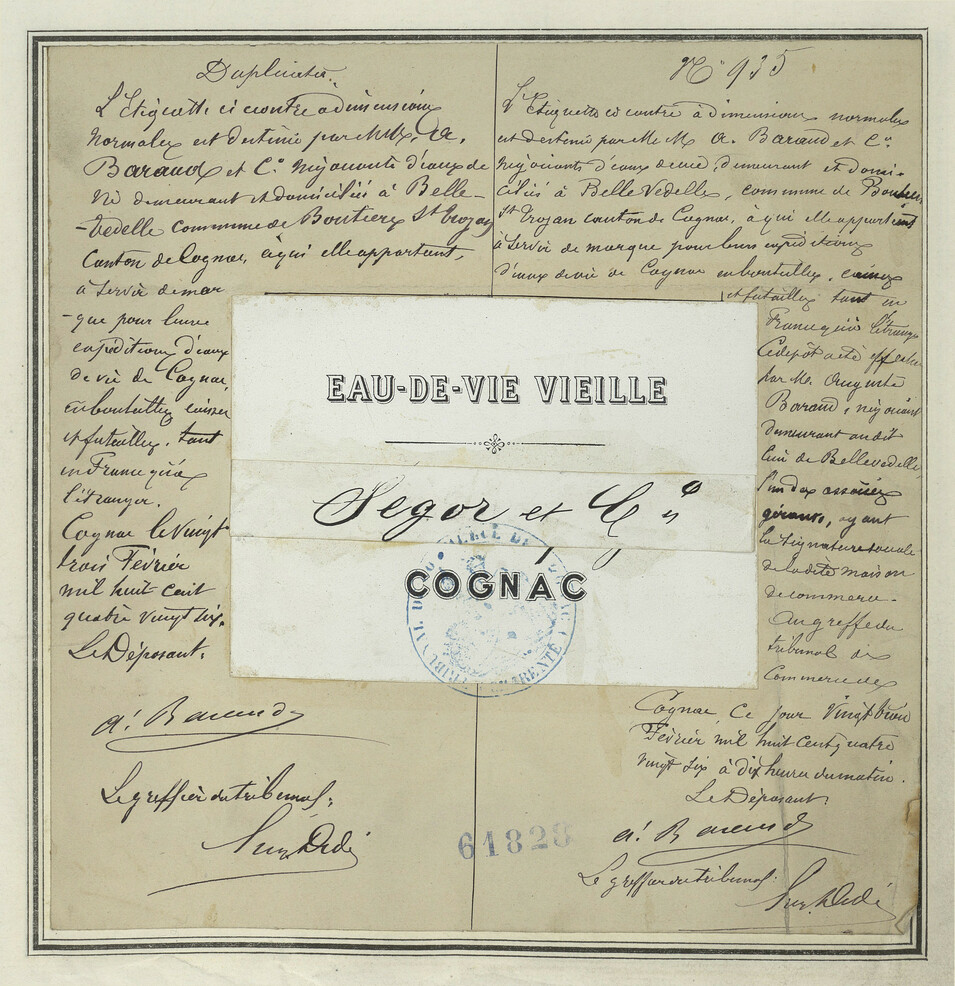 Duplicata.
L'Etiquette ci contre à dimensions
normales est destinée par MM. A.
Baraud et Cie Négociants d'eaux de
vie demeurant et domiciliés à Belle-
-vedelle commune de Boutiers St Trojan
Canton de Cognac, à qui elle appartient,
à servir de mar
-que pour leurs
expéditions d'eaux
de vie de Cognac,
en bouteilles, caisses
et futailles, tant
en France qu'à
l'étranger.
Cognac le Vingt
trois Février
mil huit cent
quatre vingt six.
Le Déposant.
A. Baraud
Le greffier du tribunal:
No 935
L'Etiquette ci contre à dimensions normales
est destinée par MM. A. Baraud et Cie
Négociants d'eaux de vie, demeurant et domi-
ciliés à Belle Vedelle, commune de Boutiers
St Trojan canton de Cognac, à qui elle appartient
à servir de marque pour leurs expéditions
d'eaux de vie de Cognac en bouteilles, caisses
et futailles tant en
France qu'à l'étranger
Ce dépôt a été effectué
par M. Auguste
Baraud, négociant
demeurant au dit
lieu de Bellevedelle,
l'un des associés
gérants, ayant
la signature sociale
de la dite maison
de commerce.
Au greffe du
tribunal de
Commerce de
Cognac, Ce jour Vingt trois
Février mil huit cent quatre
vingt six à dix heures du matin.
Le Déposant.
A. Baraud
Le greffier du tribunal.
EAU-DE-VIE VIEILLE
Segor et Cie
COGNAC
TRIBUNAL DE COMMERCE DE COGNAC (CHARENTE)
61828